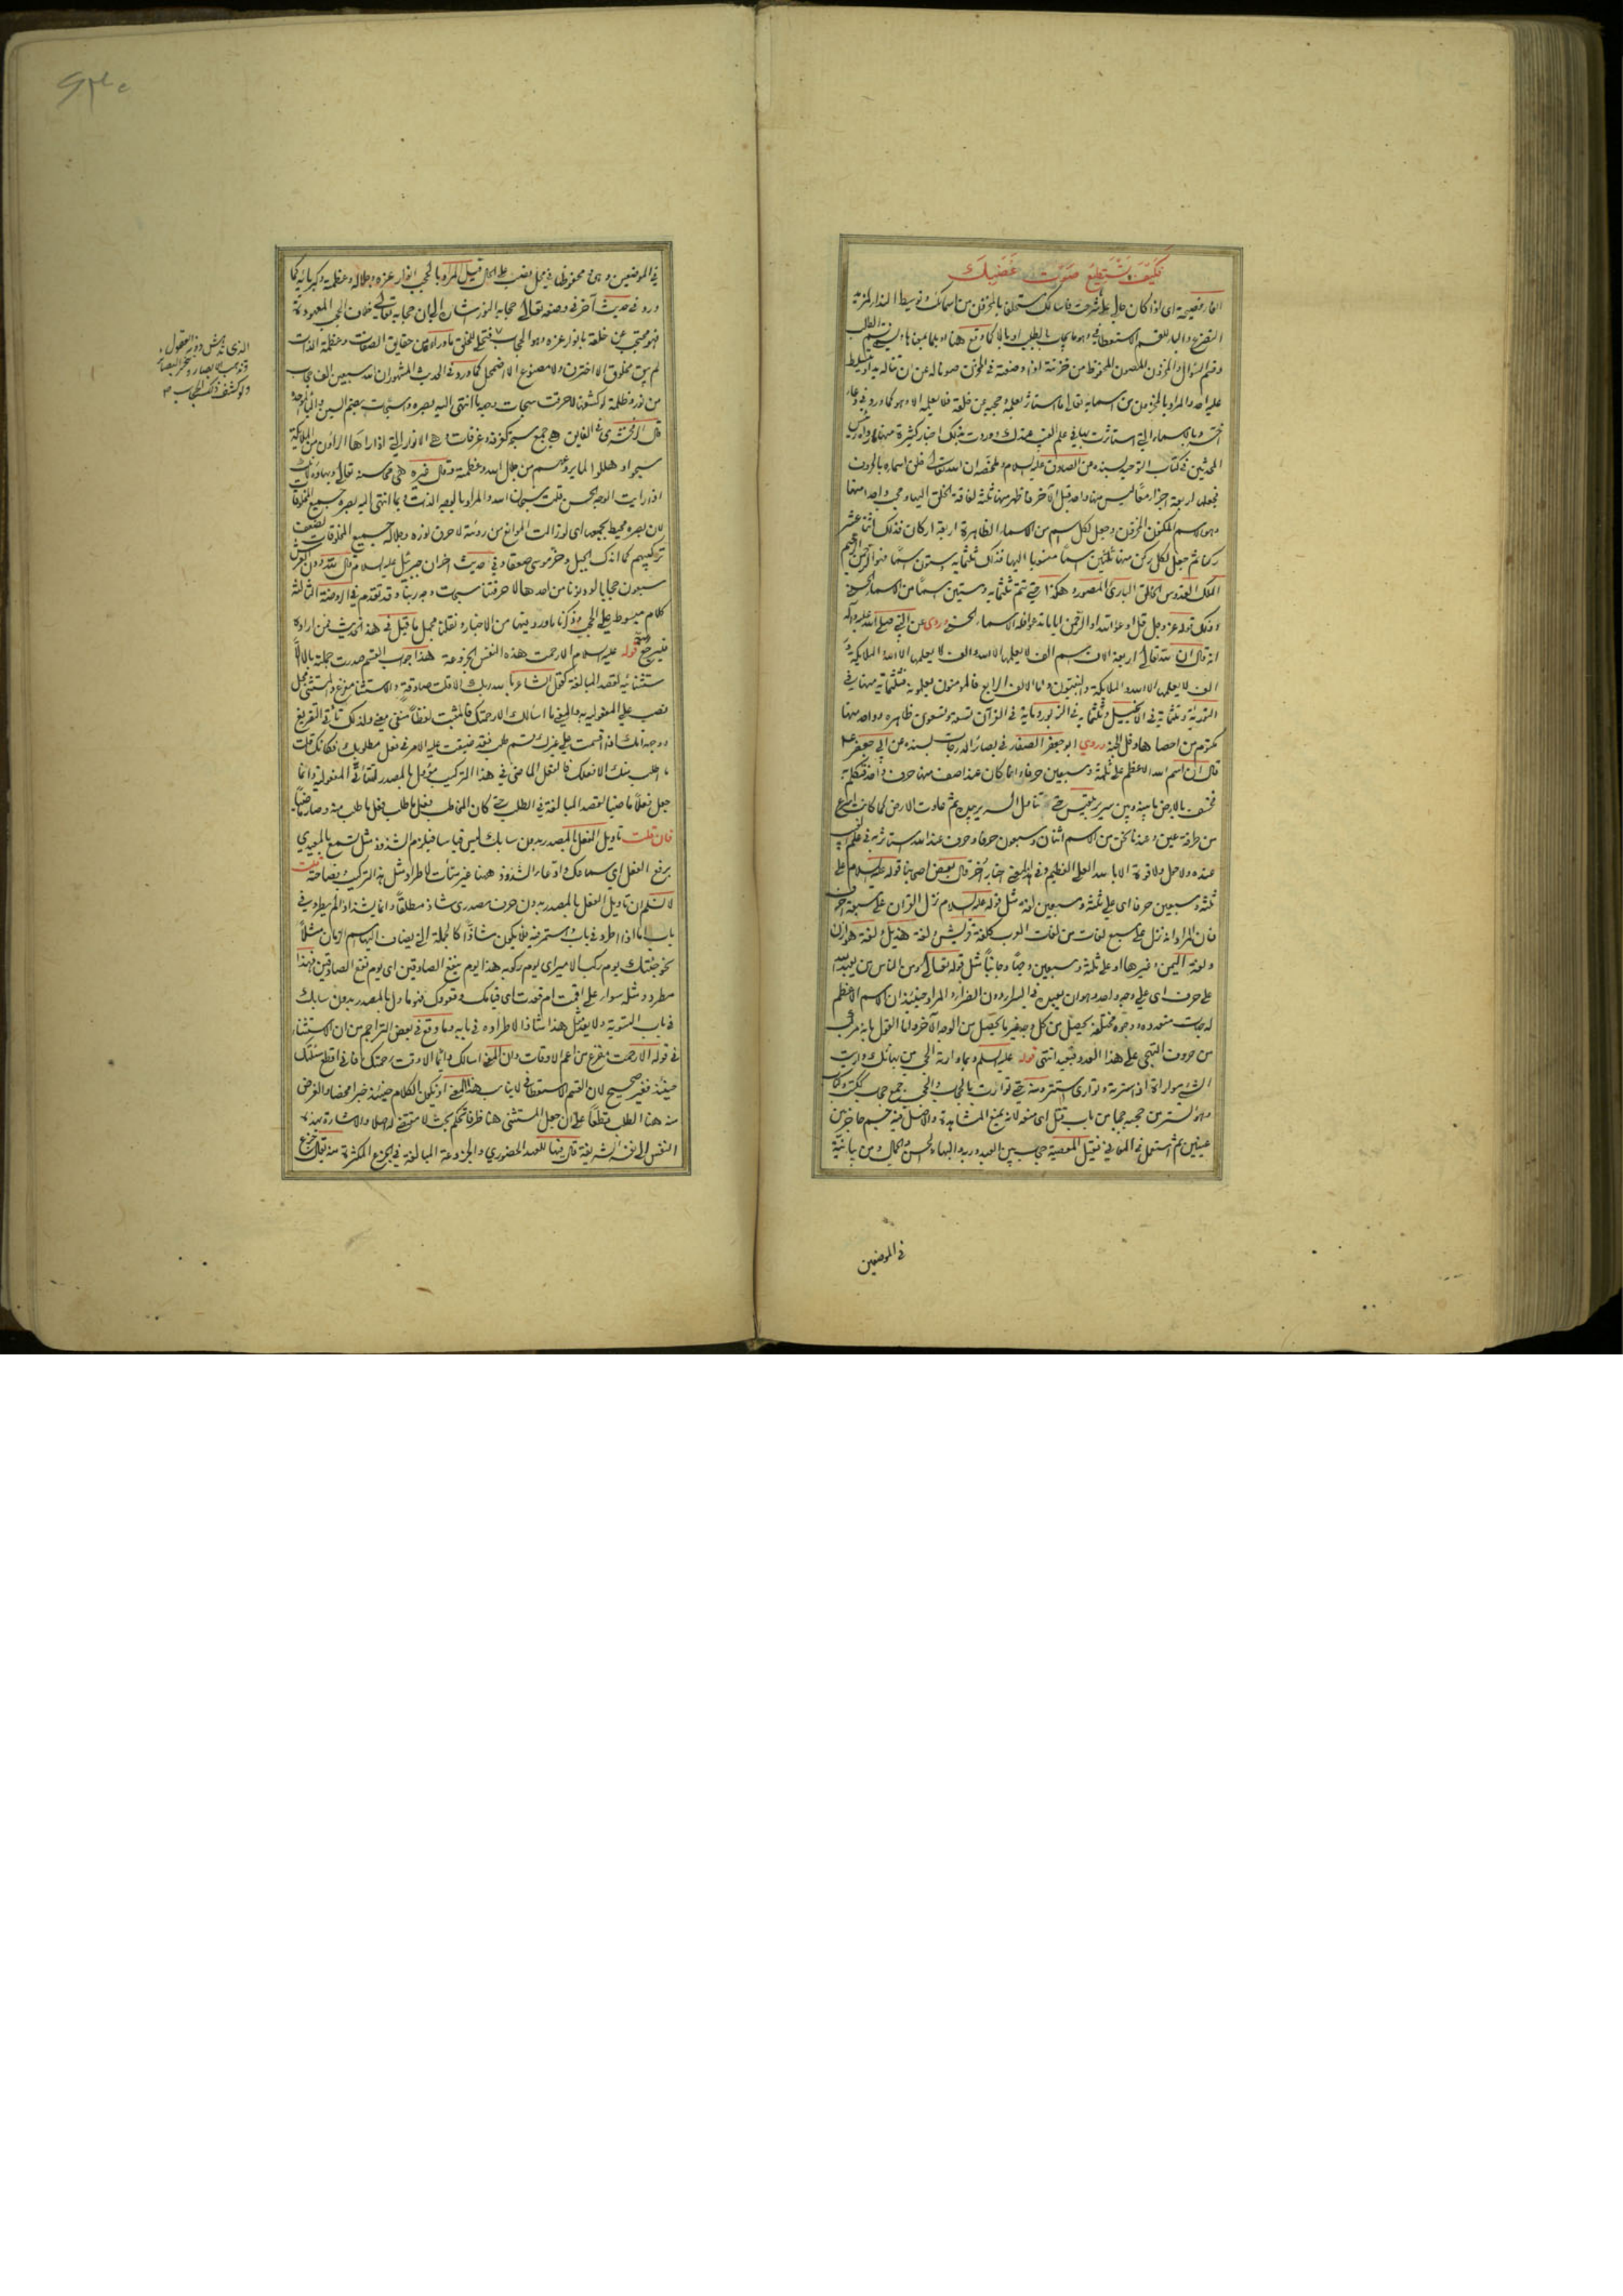 فكيف تستطيع صوت غضبك
الفاء فصيحة اى اذا كان حالى على ما شرحت فاسالك مستحلفا بالمخزون من اسمائك وتوسيط النداء لمزيد
التضرع والباء للقسم الاستعطافي وهو ما يجاب بالطلب او بالا كما وقع هنا او بلما بمعناها وليتم الطلب
وقسم السؤال والمخزون المصون المحفوظ من خزنته اذا وضعته في المخزن صونا له عن ان تناله يد او يتسلط
عليه احد والمراد بالمخزون من اسمائه تعالى ما استاثر بعلمه وحجبه عن خلقه فلا يعلمه الا هو كما ورد في دعاء
وبالاسماء التي استاثرت بها في علم الغيب عندك وردت بذلك اخبار كثيرة منها ما رواه رئيس
المحدثين في كتاب التوحيد بسنده عن الصادق عليه السلام وملخصه ان الله تعالى خلق اسماء بالحروف
فجعلها اربعة اجزاء معا ليس منها واحد قبل الاخر فاظهر منها ثلثة لفاقة الخلق اليها وحجب واحدا منها
وهو الاسم المكنون المخزون وجعل لكل اسم من الاسماء الظاهرة اربعة اركان فذلك اثنا عشر
ركنا ثم جعل لكل ركن منها ثلثين اسما منسوبا اليها فذلك ثلثمائة وستون اسما فهو الرحمن الرحيم
الملك القدوس الخالق البارئ المصور وهكذا حتى تتم ثلثمائة وستين اسما من الاسماء الحسنى
وذلك قوله عز وجل قل ادعوا الله او ادعوا الرحمن ايا ما تدعوا فله الاسماء الحسنى وروى عن النبي صلى الله عليه واله
انه قال ان لله تعالى اربعة الاف اسم الف لا يعلمها الا الله والف لا يعلمها الا الله والملائكة و
الف لا يعلمها الا الله والملائكة والنبيون واما الالف الرابع فالمؤمنون يعلمونه فثلثمائة منها في
التورية وثلثمائة في الانجيل وثلثمائة في الزبور ومائة في القرآن تسعة وتسعون ظاهرة وواحد منها
مكتوم من احصاها دخل الجنة وروى ابو جعفر الصفار في بصائر الدرجات بسنده عن ابى جعفر ع
قال ان اسم الله الاعظم على ثلثة وسبعين حرفا وانما كان عند اصف منها حرف واحد فتكلم به
فخسف بالارض ما بينه وبين سرير بلقيس حتى تناول السرير بيده ثم عادت الارض كما كانت اسرع
من طرفة عين وعندنا نحن من الاسم اثنان وسبعون حرفا وحرف عند الله استاثر به في علم الغيب
عنده ولا حول ولا قوة الا بالله العلي العظيم وفي هذا المعنى اخبار اخر قال بعض اصحابنا قوله عليه السلام على
ثلثة وسبعين حرفا اى على ثلثة وسبعين لغة مثل قوله عليه السلام نزل القرآن على سبعة احرف
فان المراد انه نزل على سبع لغات من لغات العرب كلغة قريش ولغة هذيل ولغة هوازن
ولغة اليمن وغيرها او على ثلثة وسبعين وجها وجانبا مثل قوله تعالى ومن الناس من يعبد الله
على حرف اى على وجه واحد وهو ان يعبده في السراء دون الضراء والمراد حينئذ ان الاسم الاعظم
له جهات متعددة ووجوه مختلفة يحصل من كل وجه غير ما يحصل من الوجه الاخر واما القول بانه مركب
من حروف التهجي على هذا العدد فبعيد انتهى قوله عليه السلام وبما وارته الحجب من بهائك واريت
الشئ مواراة اذا سترته وتوارى استتر ومنه حتى توارت بالحجاب والحجب جمع حجاب ككتب وكتاب
وهو الستر من حجبه حجبا من باب قتل اى منعه لانه يمنع المشاهدة والاصل فيه جسم حاجز بين
جسمين ثم استعمل في المعاني فقيل المعصية حجاب بين العبد وربه والبهاء الحسن والجمال ومن بيانية
في الموضعين
في الموضعين وهى ومخفوضها في محل نصب على الحال قيل المراد بالحجب انوار عزه وجلاله وعظمته وكبريائه كما
ورد في حديث اخر في وصفه تعالى حجابه النور اشارة الى ان حجابه تعالى خلاف الحجب المعهودة
فهو محتجب عن خلقه بانوار عزه وهو الحجاب فتجلى للخلق ما وراءه من حقايق الصفات وعظمة الذات
لم يبق مخلوق الا احترق ولا مصنوع الا اضمحل كما ورد في الحديث المشهور ان لله سبعين الف حجاب
من نور وظلمة لو كشفها لاحرقت سبحات وجهه ما انتهى اليه بصره وسبحات بضم السين والباء الموحدة
قال الزمخشرى في الفايق هى جمع سبحة كغرفة وغرفات وهى الانوار التي اذا رآها الراؤن من الملائكة
سبحوا وهللوا لما يروعهم من جلال الله وعظمته وقال غيره هى محاسنه تعالى وبهاؤه لانك
اذا رايت الوجه الحسن قلت سبحان الله والمراد بالوجه الذات وبما انتهى اليه بصره جميع المخلوقات
لان بصره محيط بجميعها اى لو زالت الموانع من رؤيته لاحرق نوره وجلاله جميع المخلوقات لضعف
تركيبهم كما اندك الجبل وخر موسى صعقا وفي حديث اخر ان جبرئيل عليه السلام قال لله دون العرش
سبعون حجابا لو دنونا من احدها لاحرقتنا سبحات وجه ربنا وقد تقدم في الروضة الثالثة
كلام مبسوط على الحجب وذكرنا ما ورد فيها من الاخبار ونقلنا مجمل ما قيل في هذا الحديث فمن اراده
فليرجع اليه قوله عليه السلام الا رحمت هذه النفس الجزوعة هذا جواب القسم صدرت جملته بالا
ستثنائية لقصد المبالغة كقول الشاعر بالله ربك الا قلت صادقة والاستثناء مفرغ والمستثنى محل
نصب على المفعولية به والمعنى ما اسالك الا رحمتك فالمثبت لفظا منفى معنى ولذلك تاتى التفريغ
ووجه انك اذا اقسمت على غيرك بقسم طلب فقد ضيقت عليه الامر في فعل مطلوبك فكانك قلت
ما اطلب منك الا فعلك فالفعل الماضى في هذا التركيب مؤول بالمصدر لقضاء حق المفعولية وانما
جعل فعلا ماضيا لقصد المبالغة في الطلب حتى كان المخاطب فعل ما طلب فعل ما طلب منه وصار ماضيا
فان قلت تاويل الفعل بالمصدر بدون سابك ليس قياسا فيلزم الشذوذ مثل تسمع بالمعيدى
برفع الفعل اى سماعك وادعاء الشذوذ هنا غير متأت لاطراد مثل هذا التركيب وفصاحته قلت
لا نسلم ان تاويل الفعل بالمصدر بدون حرف مصدرى شاذ مطلقا وانما يشذ اذا لم يطرد في
باب اما اذا اطرد في باب واستمر فيه فلا يكون شاذا كالجملة التي يضاف اليها اسم الزمان مثلا
نحو جئتك يوم ركب الامير اى يوم ركوبه هذا يوم ينفع الصادقين اى يوم نفع الصادقين فهذا
مطرد ومثله سواء على اقمت ام قعدت اى قيامك وقعودك فهو ماول بالمصدر بدون سابك
في باب التسوية ولا يعد مثل هذا شاذا لاطراده في بابه وما وقع في بعض التراجم من ان الاستثناء
في قوله الا رحمت مفرغ من اعم الاوقات وان المعنى اسالك دائما الا وقت رحمتك فاني اقطع مسئلتك
حينئذ فغير صحيح لان القسم الاستعطافي لا يناسب هذا المعنى اذ يكون الكلام حينئذ خبرا محضا والغرض
منه هنا الطلب قطعا على ان جعل المستثنى هنا ظرفا تحكم بحت لا مقتضى له اصلا والاشارة بهذه
النفس الى نفسه الشريفة فال فيها للعهد الحضوري والجزوعة المبالغة في الجزع المكثرة منه يقال جزع
الذى تدهش دونه العقول و
تذهب الابصار وتتحير البصائر
ولو كشف ذلك الحجاب ص